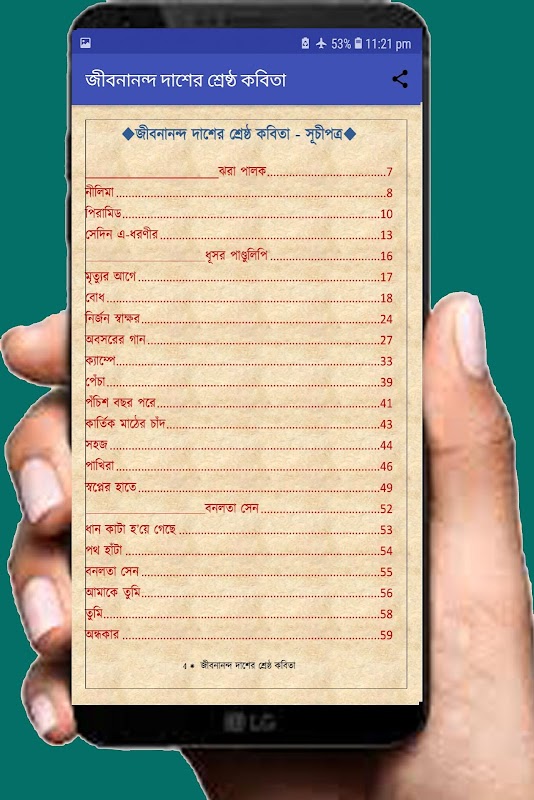 53% 11:21 pm
জীবনানন্দ দাশের শ্রেষ্ঠ কবিতা
◆জীবনানন্দ দাশের শ্রেষ্ঠ কবিতা - সূচীপত্র◆
ঝরা পালক 7
নীলিমা 8
পিরামিড 10
সেদিন এ-ধরণীর 13
ধূসর পাণ্ডুলিপি 16
মৃত্যুর আগে 17
বোধ 18
নির্জন স্বাক্ষর 24
অবসরের গান 27
ক্যাম্পে 33
পেঁচা 39
পঁচিশ বছর পরে 41
কার্তিক মাঠের চাঁদ 43
সহজ 44
পাখিরা 46
স্বপ্নের হাতে 49
বনলতা সেন 52
ধান কাটা হ'য়ে গেছে 53
পথ হাঁটা 54
বনলতা সেন 55
আমাকে তুমি 56
তুমি 58
অন্ধকার 59
4 ● জীবনানন্দ দাশের শ্রেষ্ঠ কবিতা
LG